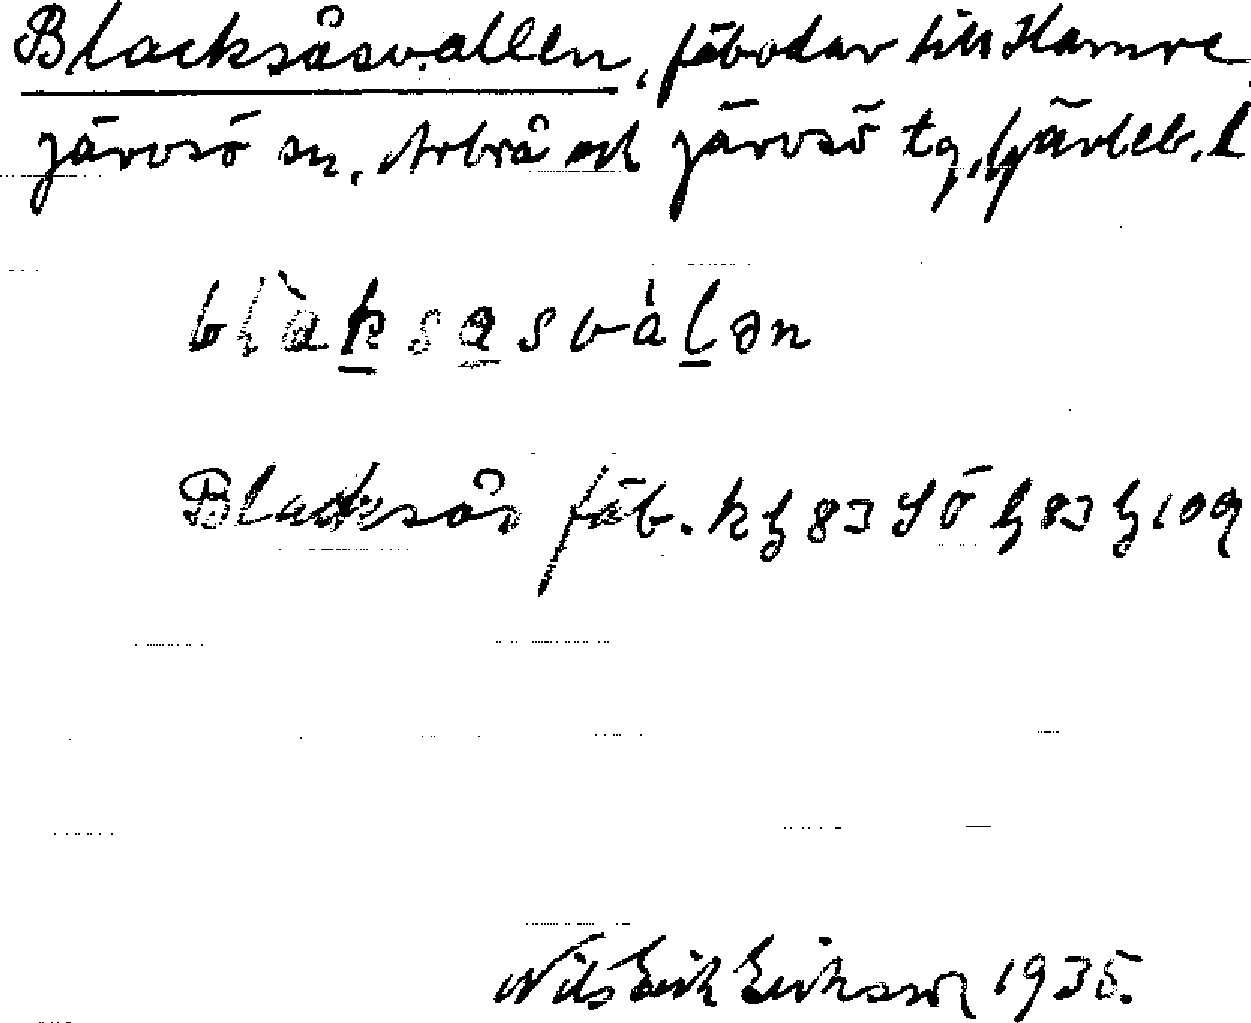 Blacksåsvallen, fäbodar till Hamre
Järvsö sn. Arbrå och Järvsö tg, Gävleb. l
blàksasvàlən
Blacksås fäb. k h 83 SÖ h 83 h 109
Nils Erik Eriksson 1935.